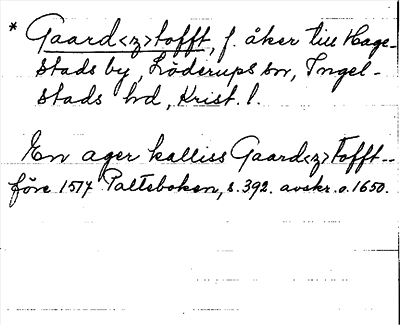 * Gaard<z>tofft, f. åker till Hage-
stads by, Löderups sn, Ingel-
stads hd, Krist. l.
En ager kalliss Gaard<z>tofft--
före 1574 Palteboken, s. 392. avskr. o. 1650.